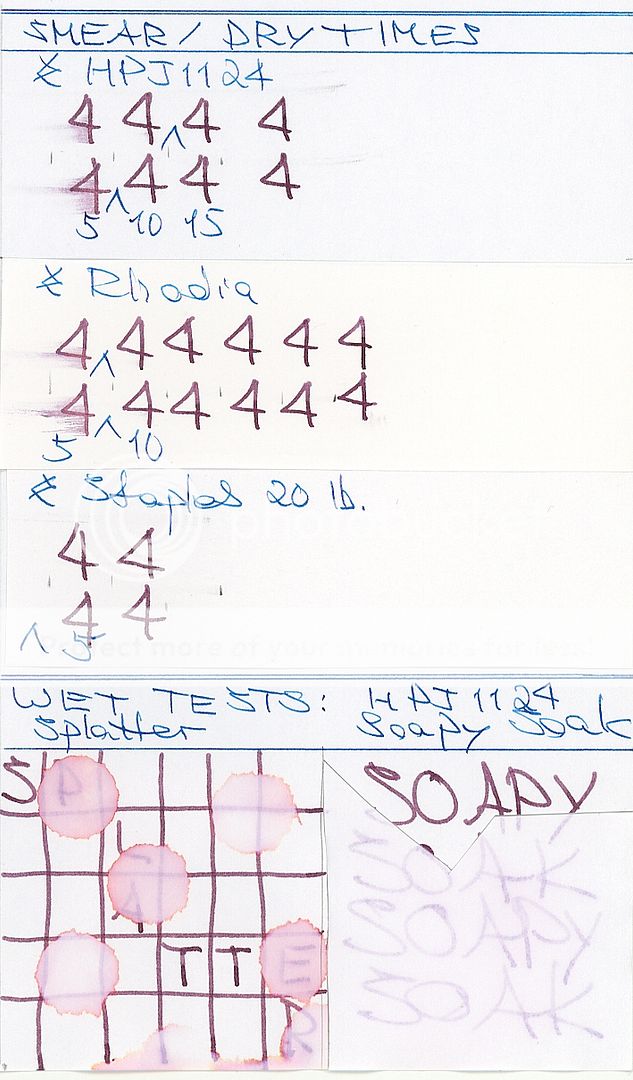 SMEAR / DRY TIMES
HPJ1124
4 4 ^ 4 4
4 ^ 4 4 4
5 10 15
Rhodia
4 ^ 4 4 4 4 4
4 ^ 4 4 4 4 4
5 10
Staples 20 lb.
4 4
4 4
^ 5
Protect more of your memories for less!
WET TESTS: HPJ1124
Splatter Soapy Soak
S P L A T T E R
SOAPY
SOAK
SOAPY
SOAK